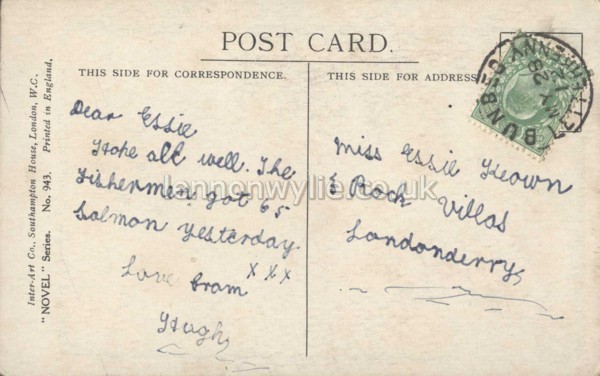 POST CARD.
THIS SIDE FOR CORRESPONDENCE.
THIS SIDE FOR ADDRESS.
Inter-Art Co., Southampton House, London, W.C.
"NOVEL" Series. No. 943. Printed in England.
Dear Essie
Hope all well. The
Fishermen got 65
Salmon yesterday.
Love from xxx
Hugh
Miss Essie Keown
Rock Villas
Londonderry
lannonwylie.co.uk